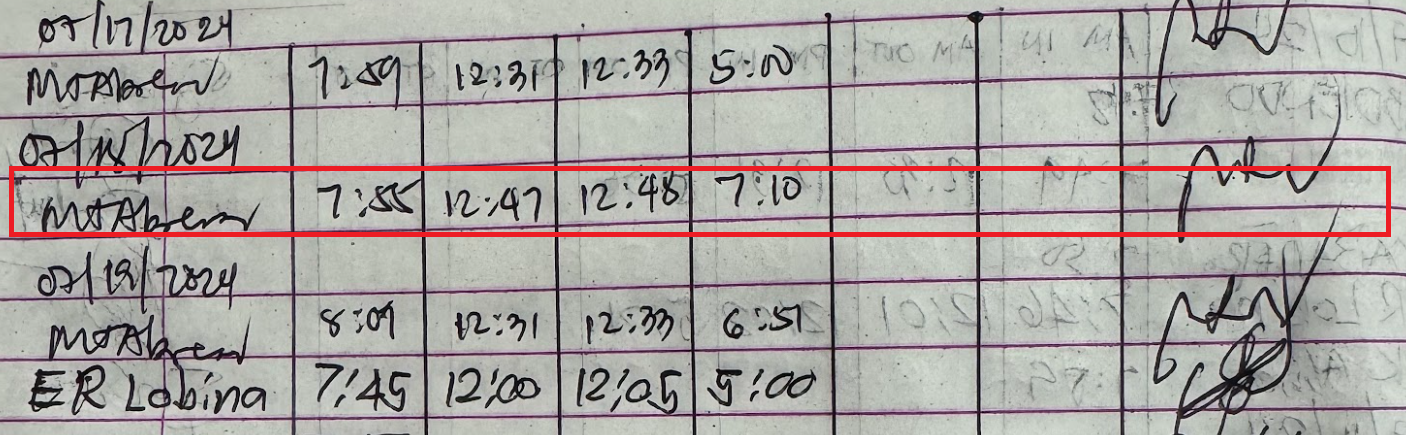 07/17/2024
MJAbrem 7:59 12:31 12:33 5:00
07/18/2024
MJAbrem 7:55 12:47 12:48 7:10
07/19/2024
MJAbrem 8:09 12:31 12:33 6:51
ER Lobina 7:45 12:00 12:05 5:00